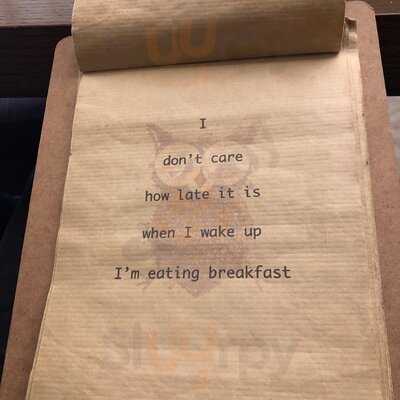 I
don't care
how late it is
when I wake up
I'm eating breakfast
Sluurpy